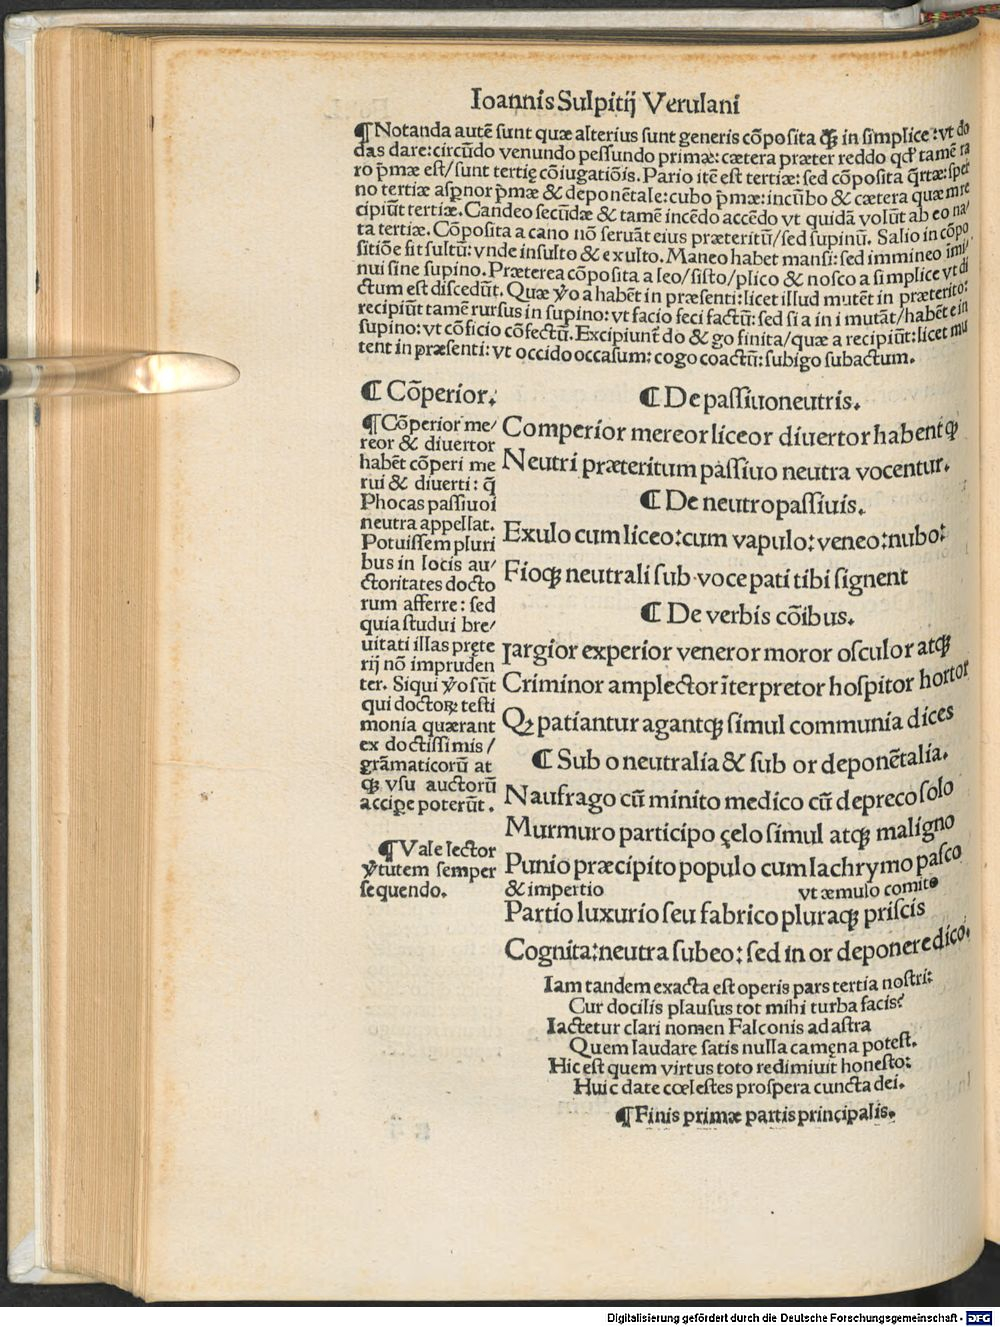 Ioannis Sulpitij Verulani
¶ Notanda autē sunt quæ alterius sunt generis cōposita ꝙ̃ in simplice: vt do
das dare: circūdo venundo pessundo primæ: cætera præter reddo qd' tamē ra
ro p̄mæ est/ sunt tertię cōiugatiōis. Pario itē est tertiæ: sed cōposita q̄rtæ: sper
no tertiæ asp̱nor p̄mæ & deponētale: cubo p̄mæ: incūbo & cætera quæ m re
cipiūt tertiæ. Candeo secūdæ & tamē incēdo accēdo vt quidā volūt ab eo na/
ta tertiæ. Cōposita a cano nō seruāt eius præteritū/ sed supinū. Salio in cōpo
sitiōe fit sultū: vnde insulto & exulto. Maneo habet mansi: sed immineo īmi/
nui sine supino. Præterea cōposita a leo/ sisto/ plico & nosco a simplice vt di
ctum est discedūt. Quæ ꝟo a habēt in præsenti: licet illud mutēt in præterito:
recipiūt tamē rursus in supino: vt facio feci factū: sed si a in i mutāt/ habēt e in
supino: vt cōficio cōfectū. Excipiunt̄ do & go finita/ quæ a recipiūt: licet mu
tent in præsenti: vt occido occasum: cogo coactū: subigo subactum.
¶ Cōperior.
¶ Cōperior me/
reor & diuertor
habēt cōperi me
rui & diuerti: q̄
Phocas passiuoi
neutra appellat.
Potuissem pluri
bus in locis au/
ctoritates docto
rum afferre: sed
quia studui bre/
uitati illas pręte
rij nō impruden
ter. Siqui ꝟo sūt
qui doctoꝝ testi
monia quærant
ex doctissimis/
grāmaticorū at
qꝫ vsu auctorū
accipe poterūt.
¶ Vale lector
ꝟtutem semper
sequendo.
¶ De passiuoneutris.
Comperior mereor liceor diuertor habentqꝫ
Neutri præteritum passiuo neutra vocentur.
¶ De neutropassiuis.
Exulo cum liceo: cum vapulo: veneo: nubo:
Fioqꝫ neutrali sub voce pati tibi signent
¶ De verbis cōibus.
Largior experior veneror moror osculor atqꝫ
Criminor amplector īterpretor hospitor hortor
Qꝫ patiantur agantqꝫ simul communia dices
¶ Sub o neutralia & sub or deponētalia.
Naufrago cū minito medico cū depreco solo
Murmuro participo çelo simul atqꝫ maligno
Punio præcipito populo cum lachrymo pasco
& impertio vt æmulo comito
Partio luxurio seu fabrico pluraqꝫ priscis
Cognita: neutra subeo: sed in or deponere dico.
Iam tandem exacta est operis pars tertia nostri:
Cur docilis plausus tot mihi turba facis?
Iactetur clari nomen Falconis ad astra
Quem laudare satis nulla camęna potest.
Hic est quem virtus toto redimiuit honesto:
Huic date cœlestes prospera cuncta dei.
¶ Finis primæ partis principalis.
Digitalisierung gefördert durch die Deutsche Forschungsgemeinschaft - DFG